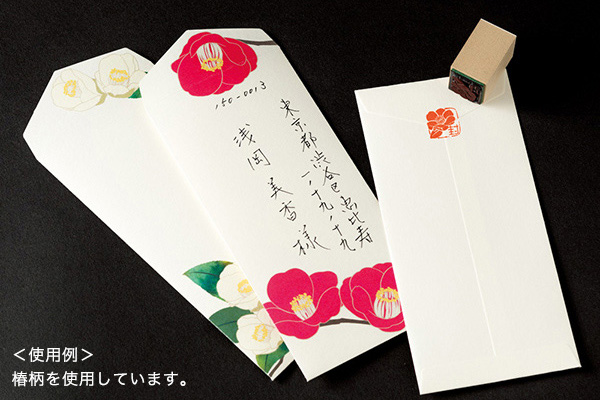 150-0013
東京都渋谷区恵比寿
一ノ十九ノ十九
浅岡 美香 様
封
＜使用例＞
椿柄を使用しています。